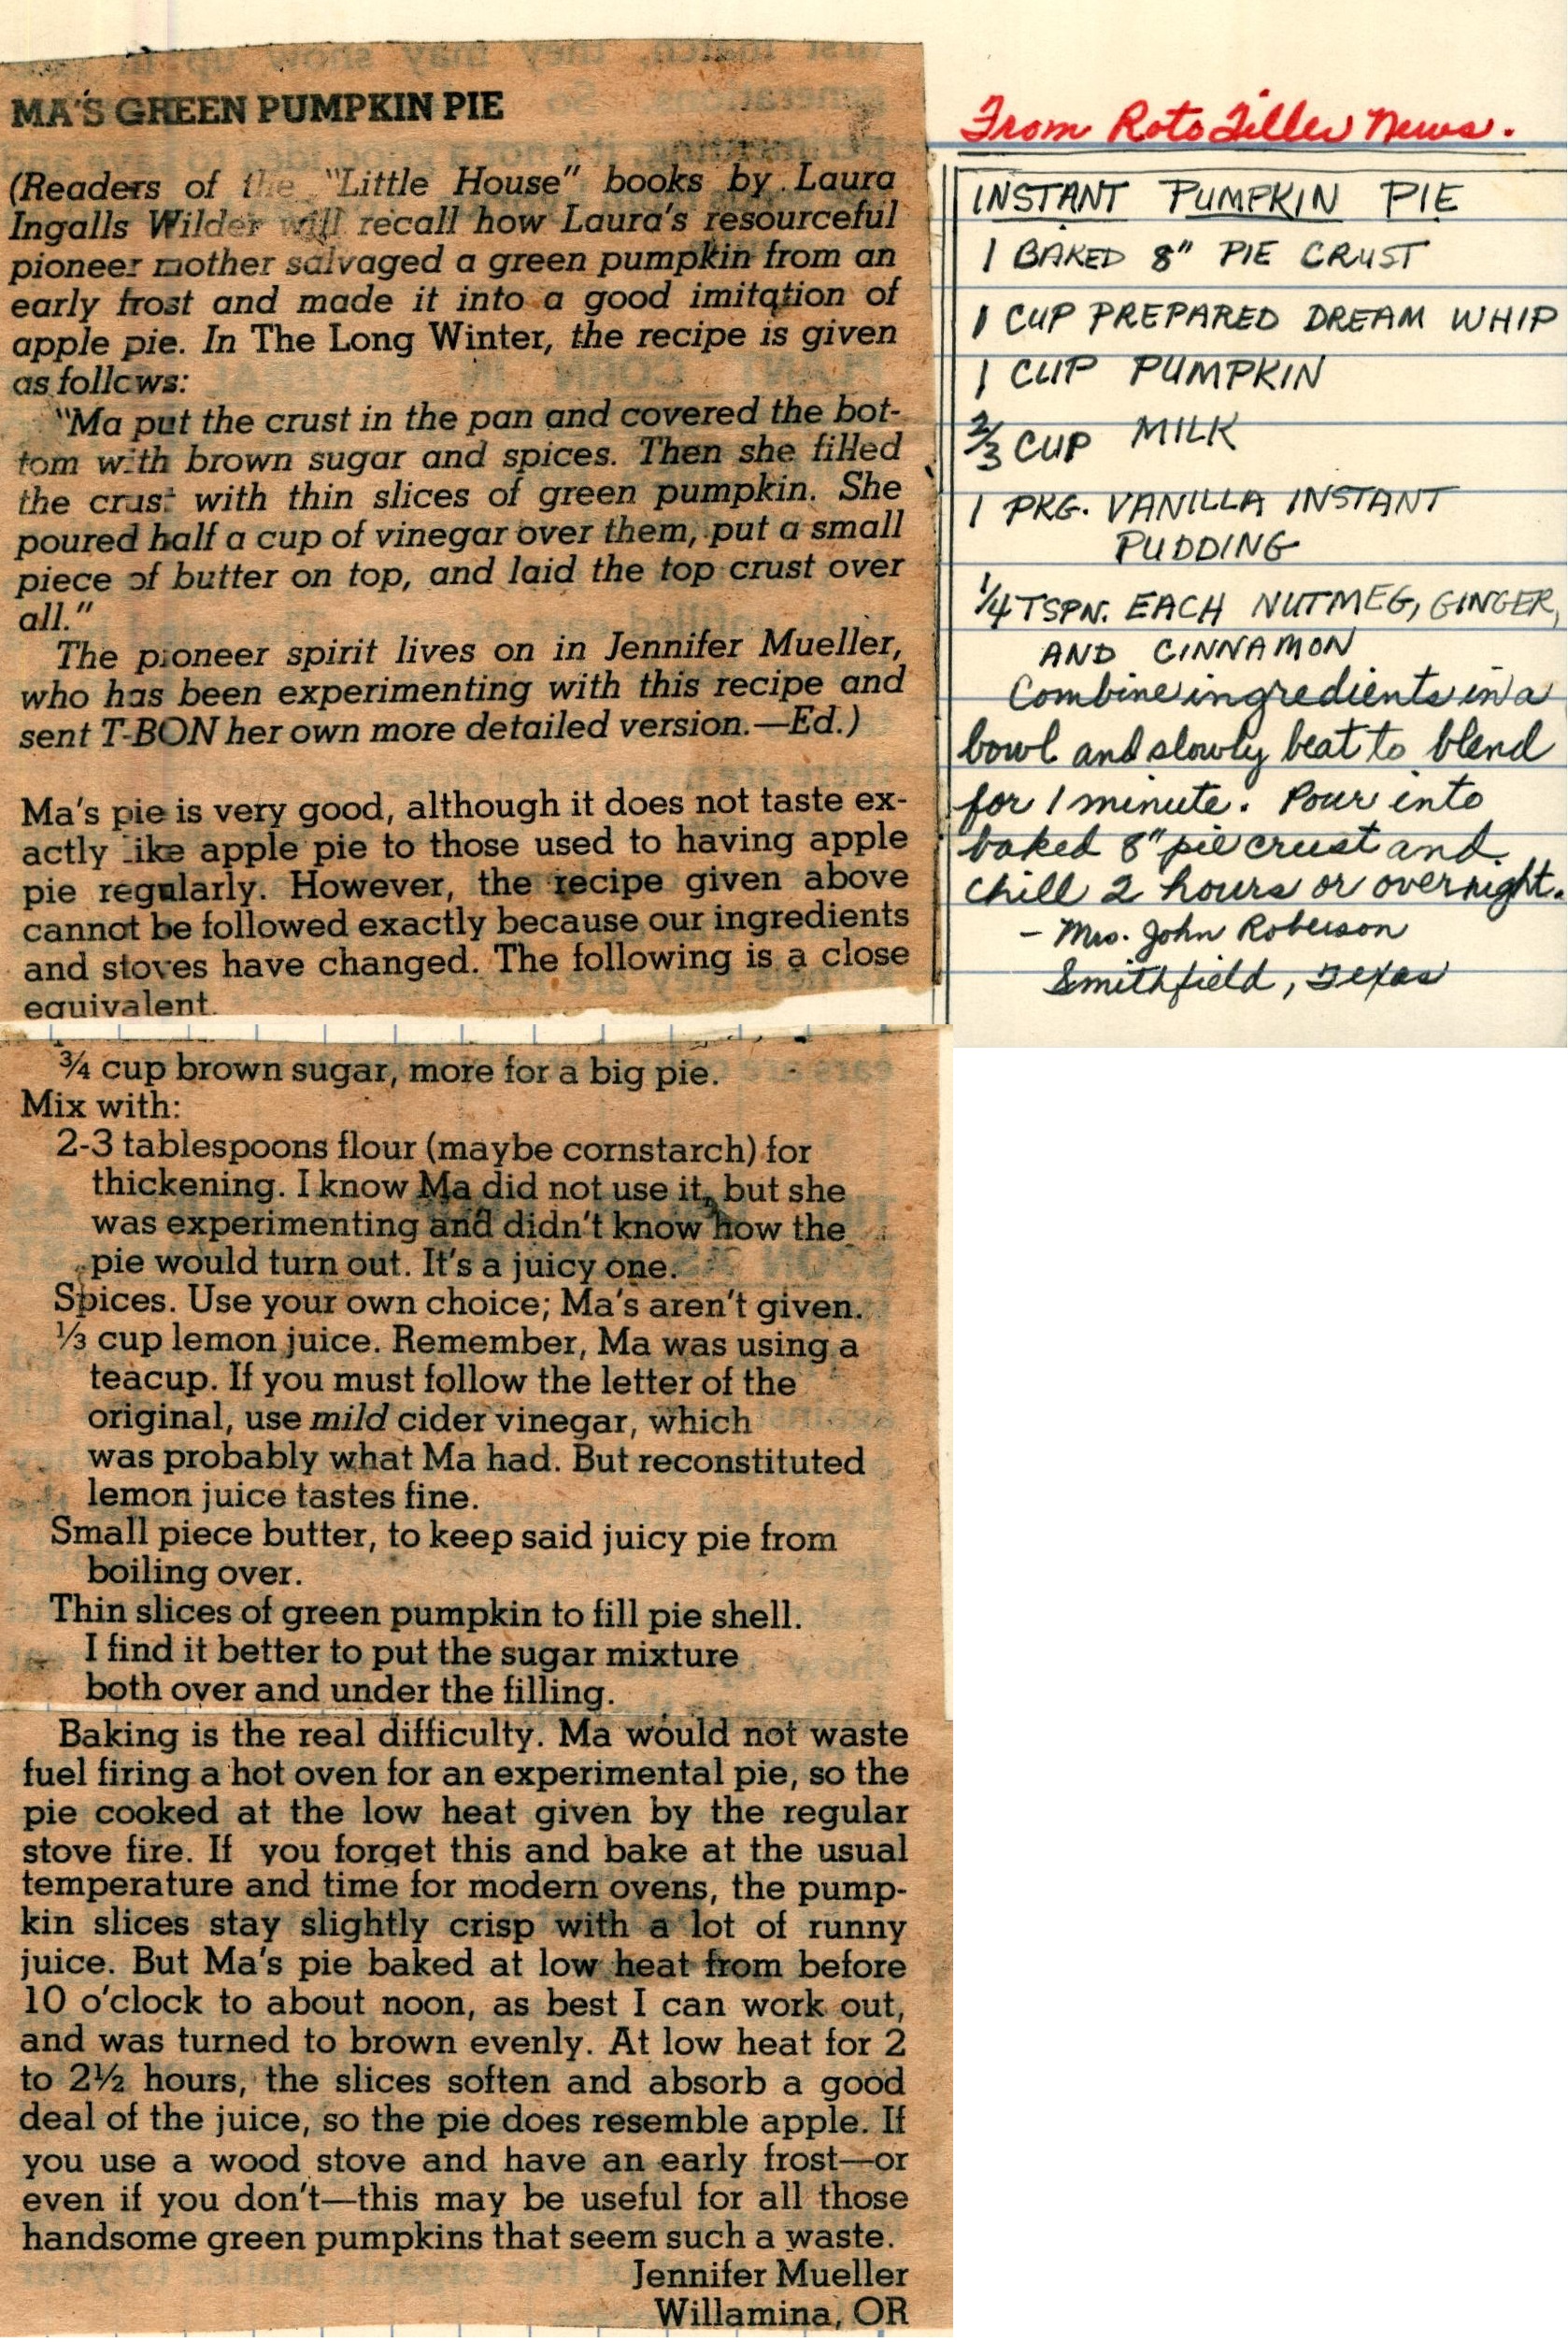 MA'S GREEN PUMPKIN PIE
(Readers of the "Little House" books by Laura
Ingalls Wilder will recall how Laura's resourceful
pioneer mother salvaged a green pumpkin from an
early frost and made it into a good imitation of
apple pie. In The Long Winter, the recipe is given
as follows:
"Ma put the crust in the pan and covered the bot-
tom with brown sugar and spices. Then she filled
the crust with thin slices of green pumpkin. She
poured half a cup of vinegar over them, put a small
piece of butter on top, and laid the top crust over
all."
The pioneer spirit lives on in Jennifer Mueller,
who has been experimenting with this recipe and
sent T-BON her own more detailed version.—Ed.)
Ma's pie is very good, although it does not taste ex-
actly like apple pie to those used to having apple
pie regularly. However, the recipe given above
cannot be followed exactly because our ingredients
and stoves have changed. The following is a close
equivalent.
¾ cup brown sugar, more for a big pie.
Mix with:
2-3 tablespoons flour (maybe cornstarch) for
thickening. I know Ma did not use it, but she
was experimenting and didn't know how the
pie would turn out. It's a juicy one.
Spices. Use your own choice; Ma's aren't given.
⅓ cup lemon juice. Remember, Ma was using a
teacup. If you must follow the letter of the
original, use mild cider vinegar, which
was probably what Ma had. But reconstituted
lemon juice tastes fine.
Small piece butter, to keep said juicy pie from
boiling over.
Thin slices of green pumpkin to fill pie shell.
I find it better to put the sugar mixture
both over and under the filling.
Baking is the real difficulty. Ma would not waste
fuel firing a hot oven for an experimental pie, so the
pie cooked at the low heat given by the regular
stove fire. If you forget this and bake at the usual
temperature and time for modern ovens, the pump-
kin slices stay slightly crisp with a lot of runny
juice. But Ma's pie baked at low heat from before
10 o'clock to about noon, as best I can work out,
and was turned to brown evenly. At low heat for 2
to 2½ hours, the slices soften and absorb a good
deal of the juice, so the pie does resemble apple. If
you use a wood stove and have an early frost—or
even if you don't—this may be useful for all those
handsome green pumpkins that seem such a waste.
Jennifer Mueller
Willamina, OR
From Roto Tiller News.
INSTANT PUMPKIN PIE
1 BAKED 8" PIE CRUST
1 CUP PREPARED DREAM WHIP
1 CUP PUMPKIN
⅔ CUP MILK
1 PKG. VANILLA INSTANT
PUDDING
¼ TSPN. EACH NUTMEG, GINGER,
AND CINNAMON
Combine ingredients in a
bowl and slowly beat to blend
for 1 minute. Pour into
baked 8" pie crust and
chill 2 hours or overnight.
- Mrs. John Roberson
Smithfield, Texas